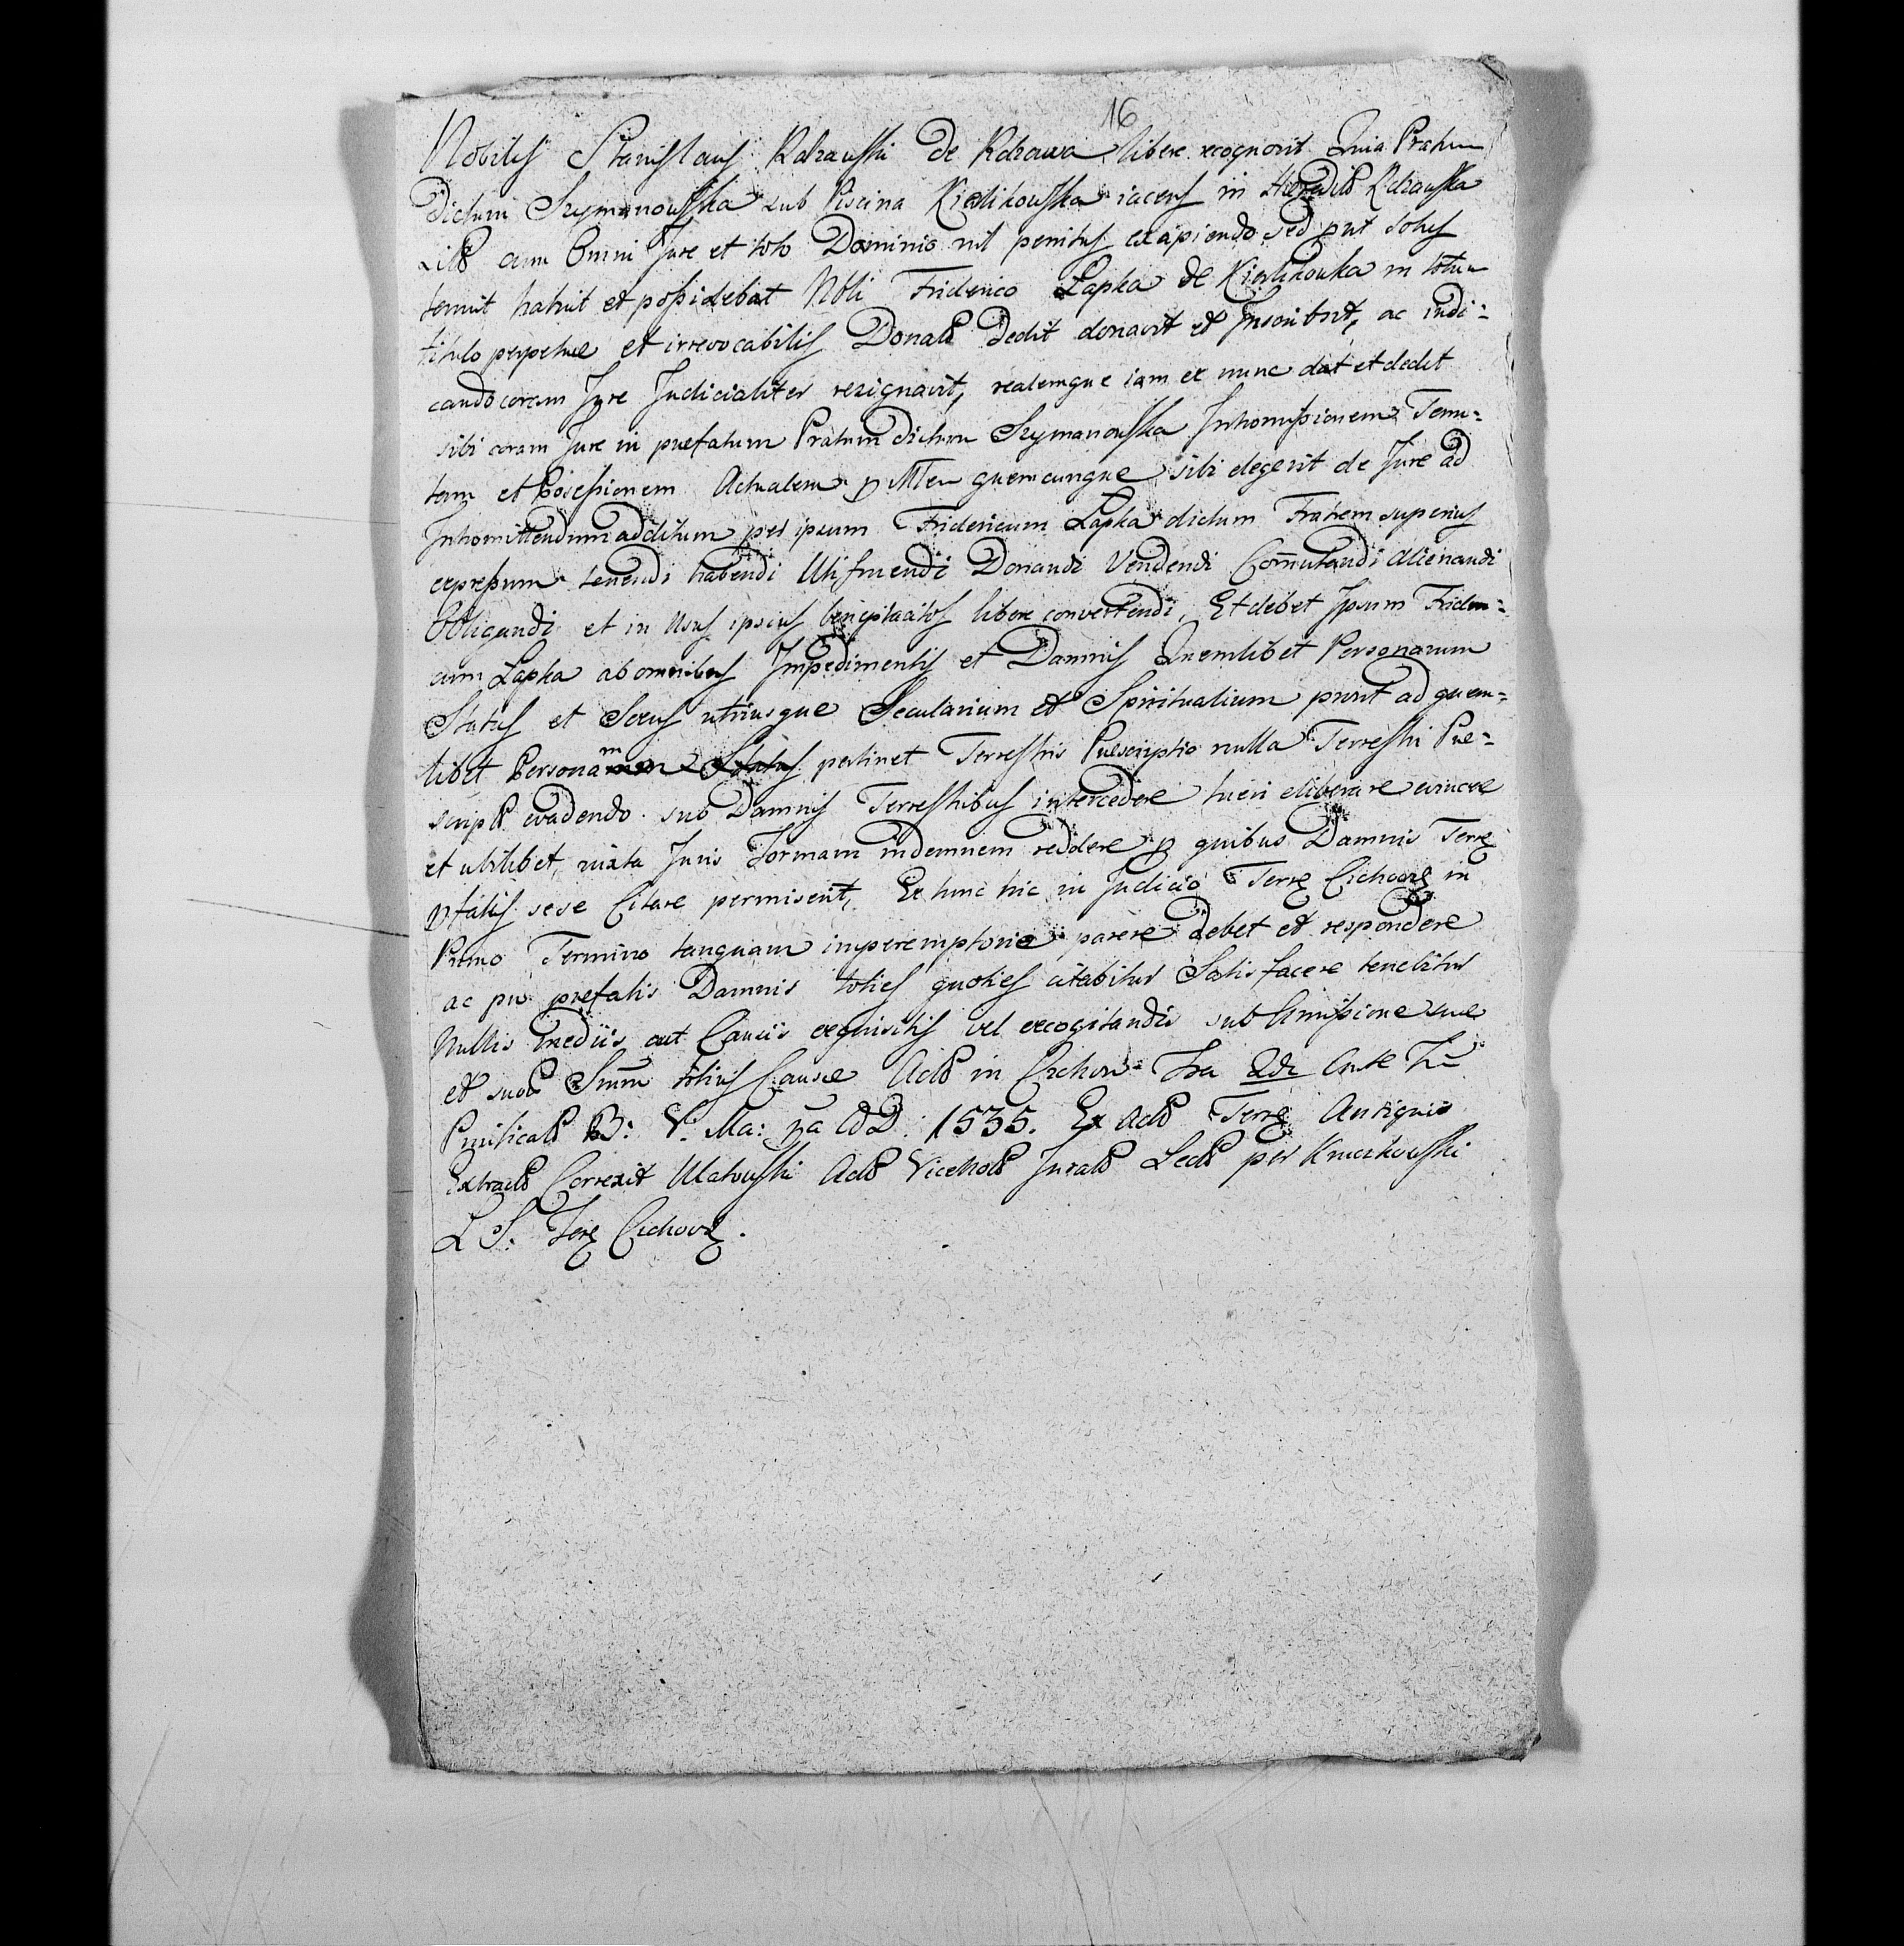 16
Nobilis Stanislaus Rdzauski de Rdzawa libere recognovit Quia Pratum
dictum Szymanowska sub Piscina Kierlikowska iacens in Heredite Rdzauska
cum Omni Jure et toto Dominio nil penitus excipiendo sed put solus
tenuit habuit et possidebat Nbli Friderico Lapka de Kierlikouka in totum
titulo perpetue et irrevocabilis Donatis Dedit donavit et Inscribsit, ac indi-
cando coram Jure Judicialiter resignavit, realemque iam ex nunc dat et dedit
sibi coram Jure in prefatum Pratum dictum Szymanouska Intromissionem Tenu-
tam et Possessionem Actualem p Mlem quemcunque sibi elegerit de Jure ad
Intromittendum additum per ipsum Fridericum Lapka dictum Fratrem superius
expressum tenendi habendi Utifruendi Donandi Vendendi Comutandi Alienandi
Obligandi et in Usus ipsius libere convertendi, Et debet Ipsum Frideri-
cum Lapka ab omnibus Impedimentis et Damnis Quemlibet Personarum
Status et Sexus utriusque Secularium et Spiritualium prout ad quem-
libet Personam Status pertinet Terrestris Prescriptio nulla Terrestri Pre-
scripte evadendo sub Damnis Terrestribus intercedere tueri eliberare evincere
et ubilibet, iuxta Juris Formam indemnem reddere p quibus Damnis Terr
pfatis sese Citare permiserit, Ex tunc hic in Judicio Terr Cichov in
Primo Termino tanquam imperemptorie parere debet et respondere
ac pro prefatis Damnis toties quoties citabitur Satisfacere tenebitur
Nullis mediis aut Causis exquisitis vel excogitandis sub Amissione sue
et totius Cause Act in Czchow Fra 2da Ante Fm
Purificats B: V. Ma: pa A D. 1535. Ex Actis Terr Antiquis
Extract Correxit Ulatouski Lect per Kruczkouski
L S. Terr Czchov.